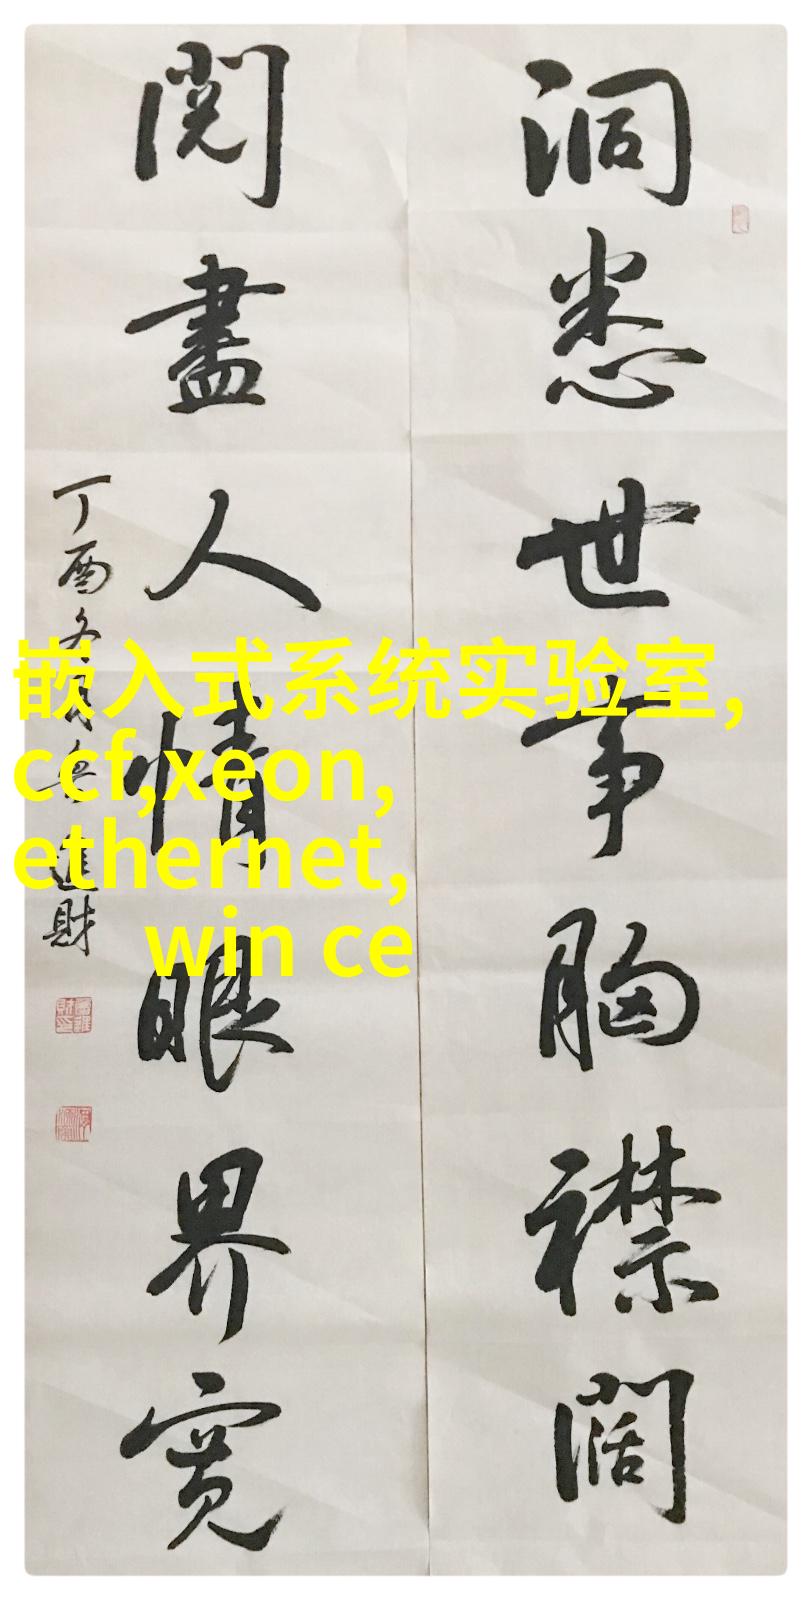 洞悉世事胸襟阔
閲盡人情眼界寬
丁酉冬月
進財
嵌入式系统实验室,
ccf,xeon,
ethernet,
win ce